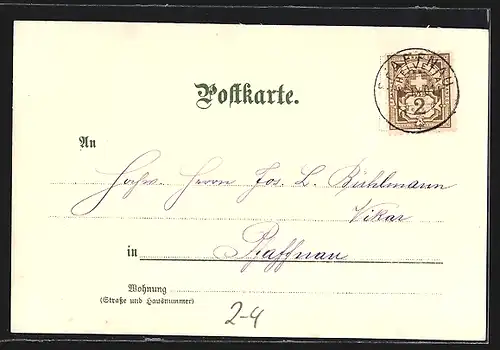 PFAFFNAU
HELVETIA
2
Postkarte.
An
Hochw. Herrn Jos. L. Bühlmann
Vikar
in Pfaffnau
Wohnung
(Straße und Hausnummer)
2-4